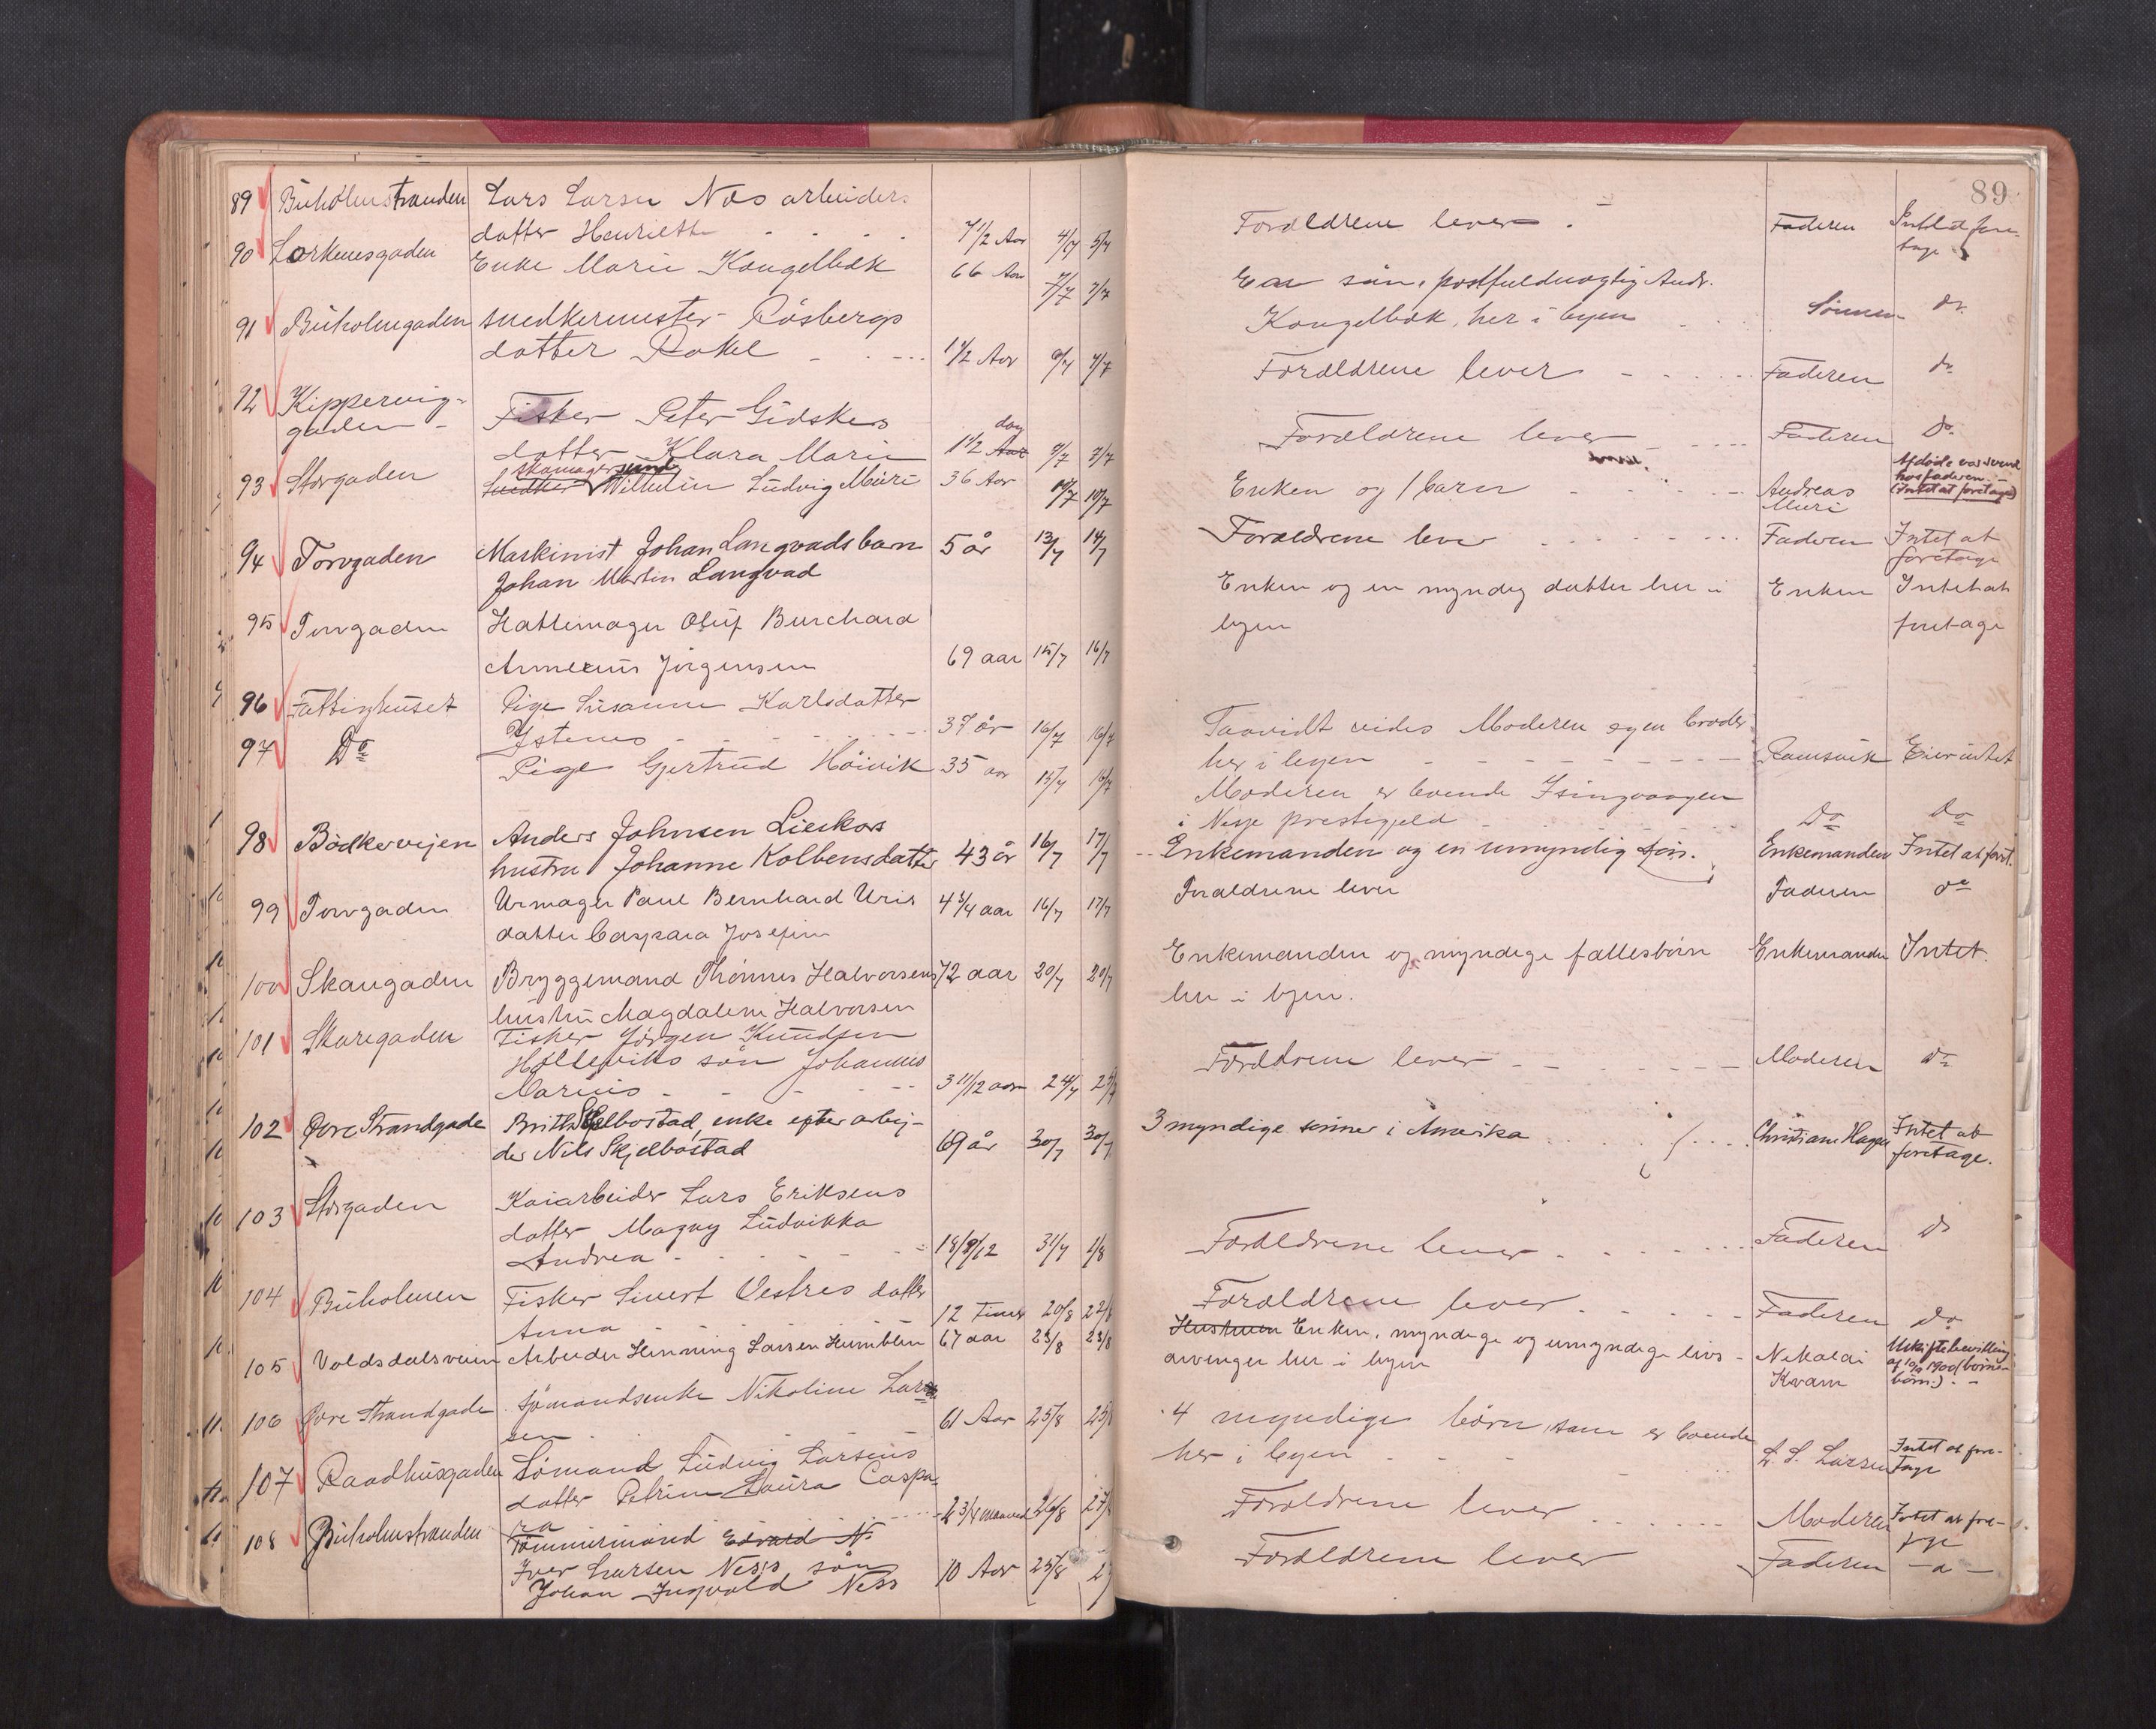 89
89 Buholmstranden Lars Larsen Nes arbeiders
datter Henriette 7 1/2 Aar 4/7 5/7
Forældrene lever. Faderen Intet at fore-
tage.
90 Lorkenesgaden Enke Marie Kongelbæk 66 Aar 7/7 7/7
En søn, postfuldmægtig Andr.
Kongelbæk, her i byen Sönnen do
91 Buholmgaden snedkermester Rösbergs
datter Rakel 1 1/2 Aar 6/7 7/7
Forældrene lever Faderen do
92 Kippervig-
gaden Fisker Peter Gidskes
datter Klara Marie 1 1/2 Aar dag 7/7 7/7
Forældrene lever Faderen Do
93 Storgaden Snedker skomagersvend Wilhelm Ludvig Muri 36 Aar 10/7 10/7
Enken og 1 barn Andreas
Muri
Afdøde var svend
hos faderen.
(Intet at foretage)
94 Torvgaden Maskinist Johan Langvads barn 5 år 13/7 14/7
Johan Martin Langvad
Forældrene lever Faderen Intet at
foretage
95 Torvgaden Hattemager Oluf Burchard
Jörgensen 69 aar 15/7 16/7
Enken og en myndig datter her i
byen Enken Intet at
foretage
96 Fattighuset Pige Susanne Karlsdatter
Ystenes 37 år 16/7 16/7
Saavidt vides Moderen og en broder
her i byen Ramsvik Eier intet
97 Do Pige Gjertrud Høivik 35 aar 15/7 16/7
Moderen er boende
i prestegjeld Do Do
98 Bødkervejen Anders Johnsen Lieskars
hustru Johanne Kolbensdatter 43 år 16/7 17/7
Enkemanden og en umyndig søn. Enkemanden Intet at foret.
99 Torvgaden Urmager Paul Bernhard Uris 4 3/4 aar 16/7 17/7
datter Caspara Josefine
Forældrene lever Faderen do
100 Skaugaden Bryggemand Thönnes Halvorsens 72 aar 20/7 20/7
hustru Magdalene Halvorsen
Enkemanden og myndige fællesbörn
her i byen. Enkemanden Intet.
101 Skaregaden Fisker Jörgen Knudsen
Holleviks sön Johannes
Marius 3 11/12 aar 24/7 25/7
Forældrene lever Moderen do
102 Øvre Strandgade Brith Skjelbostad, enke efter arbej-
der Nils Skjelbostad 69 år 30/7 30/7
3 myndige sønner i Amerika Christiane Hagen Intet at
foretage.
103 Storgaden Kaiarbeider Lars Eriksens
datter Magny Ludvikka
Andrea 18/8/12 31/7 1/8
Forældrene lever Faderen do
104 Buholmen Fisker Sivert Vestres datter
Anna 12 timer 20/8 22/8
Forældrene lever Faderen do
105 Voldsdalsveien Arbeider Henning Larsen Humblen 67 aar 23/8 23/8
Hustruen Enken, myndige og umyndige livs-
arvinger her i byen Nikolai
Kvam
Uskiftebevilling
af 10/9 1900 (börne-
börn.)
106 Øvre Strandgade Sjömandsenke Nikoline Lar-
sen 61 Aar 25/8 25/8
4 myndige börn, som er boende
her i byen L. L. Larsen Intet at fore-
tage
107 Raadhusgaden Sömand Ludvig Larsens
datter Petrine Laura Caspa-
ra 2 3/4 maaned 26/8 27/8
Forældrene lever Moderen Intet at fore-
tage
108 Buholmstranden Tømmermand Edvard N
Iver Larsen Ness' sön
Johan Ingvald Ness 10 Aar 25/8
Forældrene lever Faderen - a -